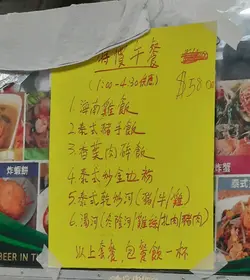 特價午餐
(1:00-4:30供應)
$58.00
1.海南雞飯
2.泰式豬手飯
3.香葉肉碎飯
4.泰式炒金边粉
5.泰式乾炒河(豬/牛/雞)
6.湯河(冬陰河/雞絲/扎肉/豬肉)
以上套餐,包餐飲一杯
炸蝦餅
炸蟹
泰式
BEER IN T